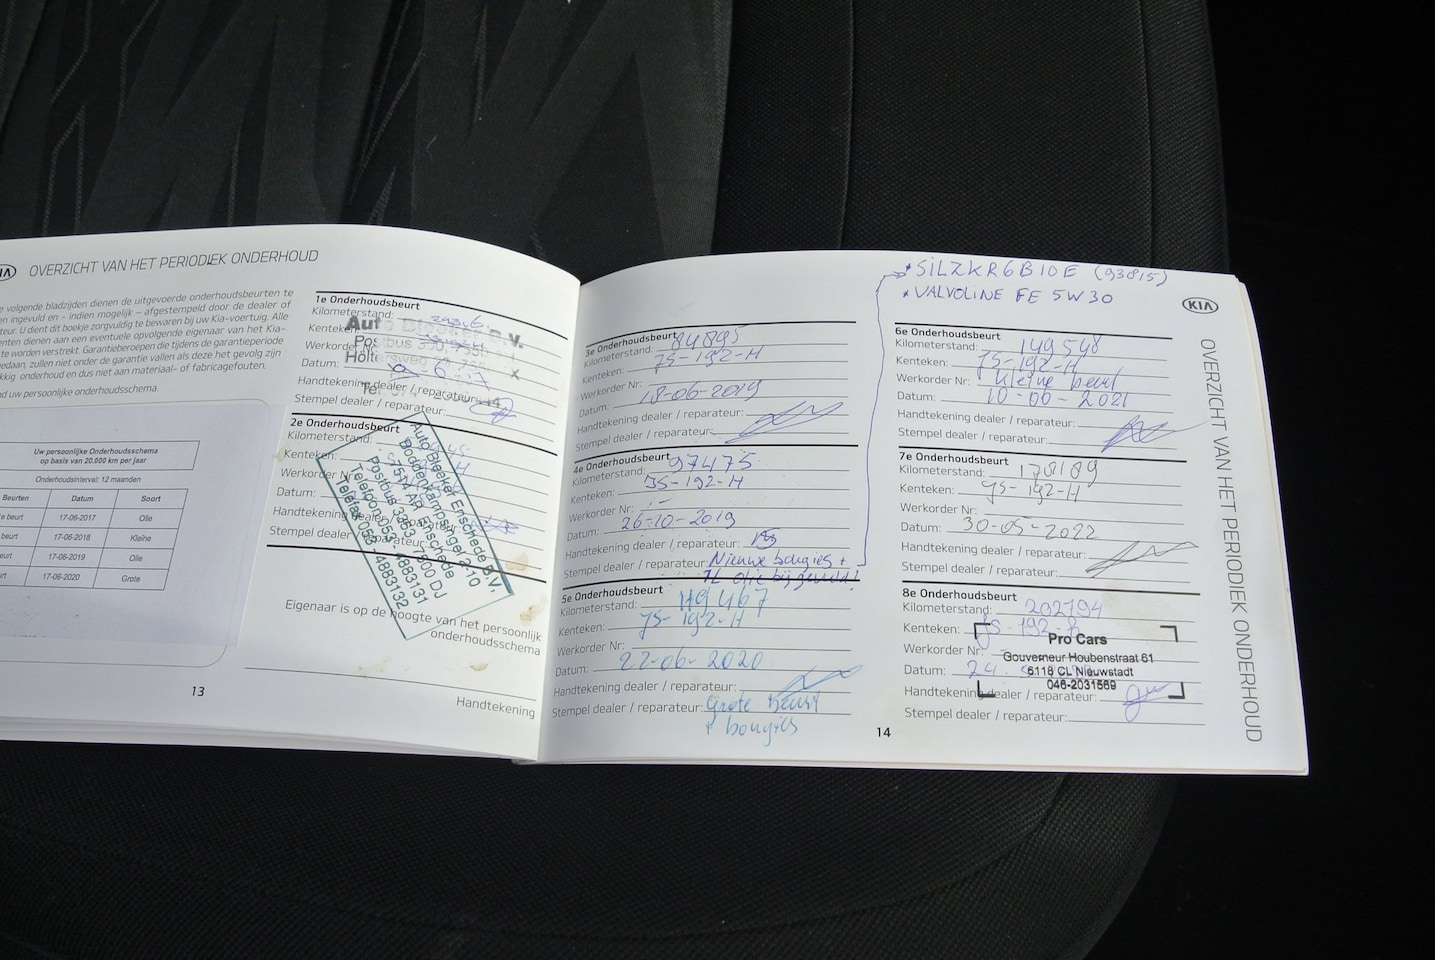 KIA OVERZICHT VAN HET PERIODIEK ONDERHOUD
volgende bladzijden dienen de uitgevoerde onderhoudsbeurten te
ingevuld en - indien mogelijk - afgestempeld door de dealer of
U dient dit boekje zorgvuldig te bewaren bij uw Kia-voertuig. Alle
dienen aan een eventuele opvolgende eigenaar van het Kia-
te worden verstrekt. Garantieberoepen die tijdens de garantieperiode
zullen niet onder de garantie vallen als deze het gevolg zijn
onderhoud en dus niet aan materiaal- of fabricagefouten.
uw persoonlijke onderhoudsschema.
Uw persoonlijke Onderhoudsschema
op basis van 20.000 km per jaar
Onderhoudsinterval: 12 maanden
Beurten Datum Soort
beurt 17-06-2017 Olie
beurt 17-06-2018 Kleine
17-06-2019 Olie
17-06-2020 Grote
13
1e Onderhoudsbeurt
Kilometerstand:
Kenteken:
Werkorder
Datum:
Handtekening dealer / reparateur:
Stempel dealer / reparateur:
Auto B.V.
2e Onderhoudsbeurt
Kilometerstand:
Kenteken:
Werkorder Nr
Datum:
Handtekening dealer / reparateur:
Stempel dealer / reparateur:
Auto Bleeker Enschede B.V.
Boddenkampsingel 2-10
7514 AR Enschede
Postbus 3363 - 7500 DJ
Telefoon 053 - 4883131
Telefax 053 - 4883132
Eigenaar is op de hoogte van het persoonlijk
onderhoudsschema
Handtekening
3e Onderhoudsbeurt
Kilometerstand: 84895
Kenteken: JS-192-H
Werkorder Nr:
Datum: 18-06-2019
Handtekening dealer / reparateur:
Stempel dealer / reparateur:
4e Onderhoudsbeurt
Kilometerstand: 97475
Kenteken: JS-192-H
Werkorder Nr:
Datum: 26-10-2019
Handtekening dealer / reparateur:
Stempel dealer / reparateur: Nieuwe bougies +
1L olie bijgevuld!
5e Onderhoudsbeurt
Kilometerstand: 119467
Kenteken: JS-192-H
Werkorder Nr:
Datum: 22-06-2020
Handtekening dealer / reparateur:
Stempel dealer / reparateur: Grote beurt
+ bougies
14
* SILZKR6B10E (93815)
* VALVOLINE FE 5W30
KIA
6e Onderhoudsbeurt
Kilometerstand: 149548
Kenteken: JS-192-H
Werkorder Nr: Kleine beurt
Datum: 10-06-2021
Handtekening dealer / reparateur:
Stempel dealer / reparateur:
7e Onderhoudsbeurt
Kilometerstand: 178189
Kenteken: JS-192-H
Werkorder Nr:
Datum: 30-05-2022
Handtekening dealer / reparateur:
Stempel dealer / reparateur:
8e Onderhoudsbeurt
Kilometerstand: 202794
Kenteken: JS-192-H
Werkorder Nr:
Datum: 24
Handtekening dealer / reparateur:
Stempel dealer / reparateur:
Pro Cars
Gouverneur Houbenstraat 61
6118 CL Nieuwstadt
046-2031569
OVERZICHT VAN HET PERIODIEK ONDERHOUD